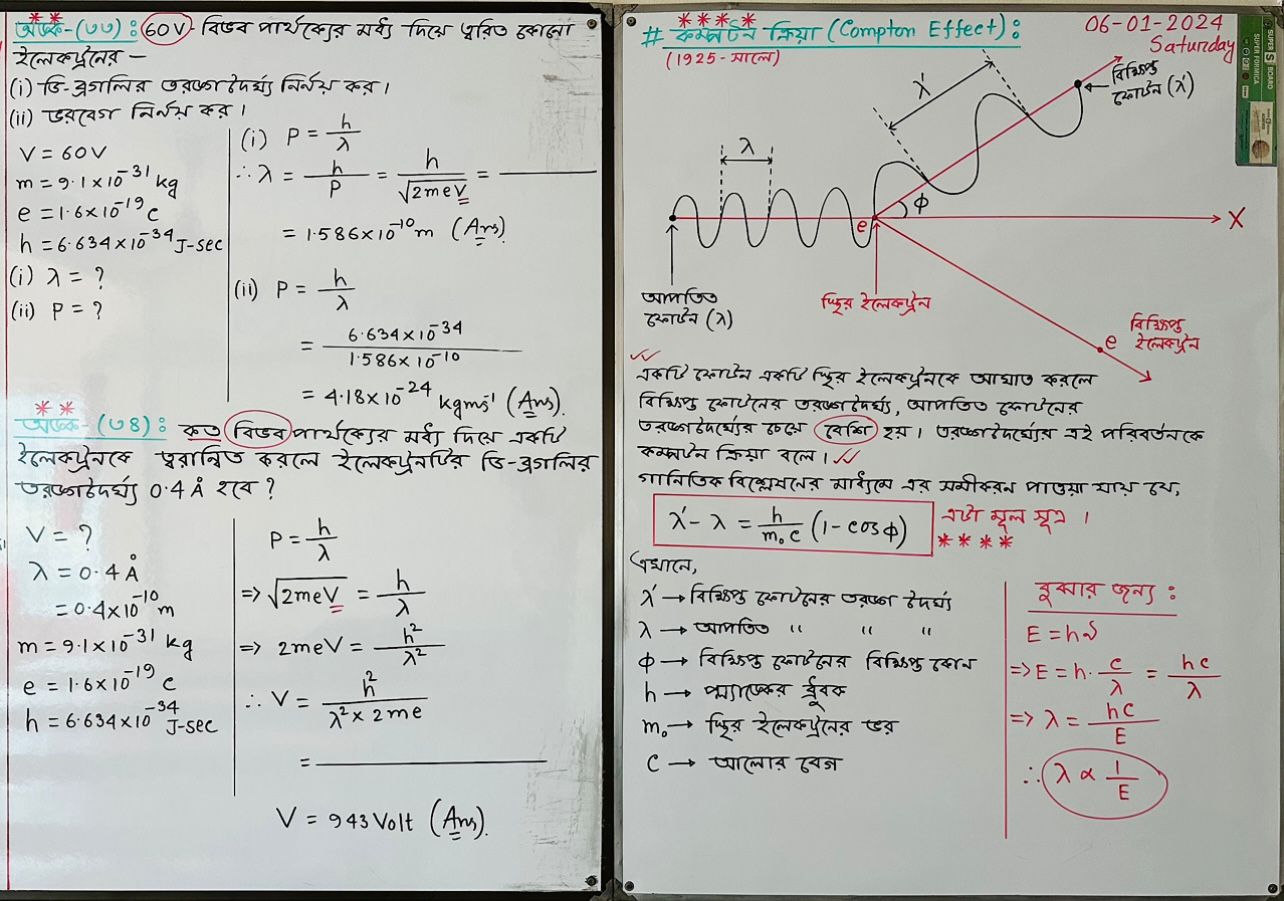 অংক-(৩৩) : 60V বিভব পার্থক্যের মধ্য দিয়ে ত্বরিত কোনো
ইলেকট্রনের —
(i) ডি-ব্রগলির তরঙ্গদৈর্ঘ্য নির্নয় কর।
(ii) ভরবেগ নির্নয় কর।
V = 60V
m = 9.1×10⁻³¹ kg
e = 1.6×10⁻¹⁹ C
h = 6.634×10⁻³⁴ J-sec
(i) λ = ?
(ii) P = ?
(i) P = h/λ
∴ λ = h/P = h/√2meV =
= 1.586×10⁻¹⁰ m (Ans).
(ii) P = h/λ
= 6.634×10⁻³⁴/1.586×10⁻¹⁰
= 4.18×10⁻²⁴ kgms⁻¹ (Ans).
** 
অংক-(৩৪) : কত বিভব পার্থক্যের মধ্য দিয়ে একটি
ইলেকট্রনকে ত্বরান্বিত করলে ইলেকট্রনটির ডি-ব্রগলির
তরঙ্গদৈর্ঘ্য 0.4 Å হবে ?
V = ?
λ = 0.4 Å
= 0.4×10⁻¹⁰ m
m = 9.1×10⁻³¹ kg
e = 1.6×10⁻¹⁹ C
h = 6.634×10⁻³⁴ J-sec
P = h/λ
=> √2meV = h/λ
=> 2meV = h²/λ²
∴ V = h²/λ²×2me
=
V = 943 Volt (Ans).
****
# কম্পটন ক্রিয়া (Compton Effect) :
(1925-সালে)
06-01-2024
Saturday
SUPER S BOARD
SUPER FORMICA
বিক্ষিপ্ত
ফোটন (λ′)
λ′
λ
ϕ
e
X
আপতিত
ফোটন (λ)
স্থির ইলেকট্রন
বিক্ষিপ্ত
e ইলেকট্রন
একটি ফোটন একটি স্থির ইলেকট্রনকে আঘাত করলে
বিক্ষিপ্ত ফোটনের তরঙ্গদৈর্ঘ্য, আপতিত ফোটনের
তরঙ্গদৈর্ঘ্যের চেয়ে বেশি হয়। তরঙ্গদৈর্ঘ্যের এই পরিবর্তনকে
কম্পটন ক্রিয়া বলে।
গানিতিক বিশ্লেষনের মাধ্যমে এর সমীকরন পাওয়া যায় যে,
λ′ - λ = h/m₀c (1 - cosϕ) এটা মূল সূত্র।
****
এখানে,
λ′ → বিক্ষিপ্ত ফোটনের তরঙ্গ দৈর্ঘ্য
λ → আপতিত " " "
ϕ → বিক্ষিপ্ত ফোটনের বিক্ষিপ্ত কোন
h → প্ল্যাংকের ধ্রুবক
m₀ → স্থির ইলেকট্রনের ভর
c → আলোর বেগ
বুঝার জন্য :
E = hν
=> E = h·c/λ = hc/λ
=> λ = hc/E
∴ λ ∝ 1/E